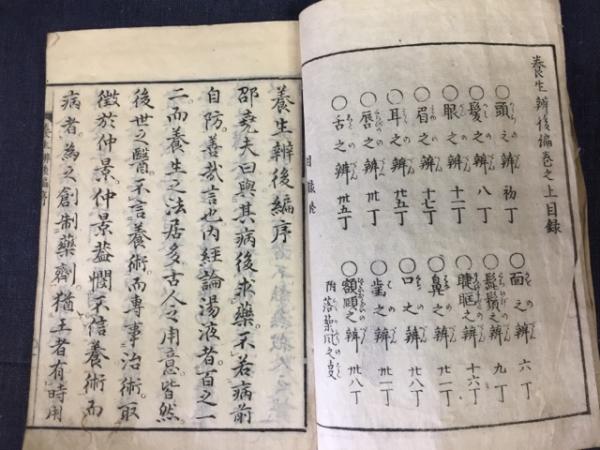 養生辨後編卷之上目録
〇頭之辨 初丁
〇面之辨 六丁
〇髮之辨 八丁
〇鬚髯之辨 九丁
〇眼之辨 十二丁
〇睫眶之辨 十六丁
〇眉之辨 十七丁
〇鼻之辨 廿一丁
〇耳之辨 廿五丁
〇口之辨 廿八丁
〇唇之辨 卅丁
〇歯之辨 卅一丁
〇舌之辨 卅五丁
〇額頤之辨 卅八丁
目録終
養生辨後編序
邵堯夫曰與其病後求藥不若病前
自防善哉言也内經論湯液者百之一
二而養生之法居多古人之用意皆然。
後世之醫不言養術而專事治術取
徴於仲景。仲景葢憫不信養術而
病者為之創制藥劑。猶王者有時用
養生辨後編序